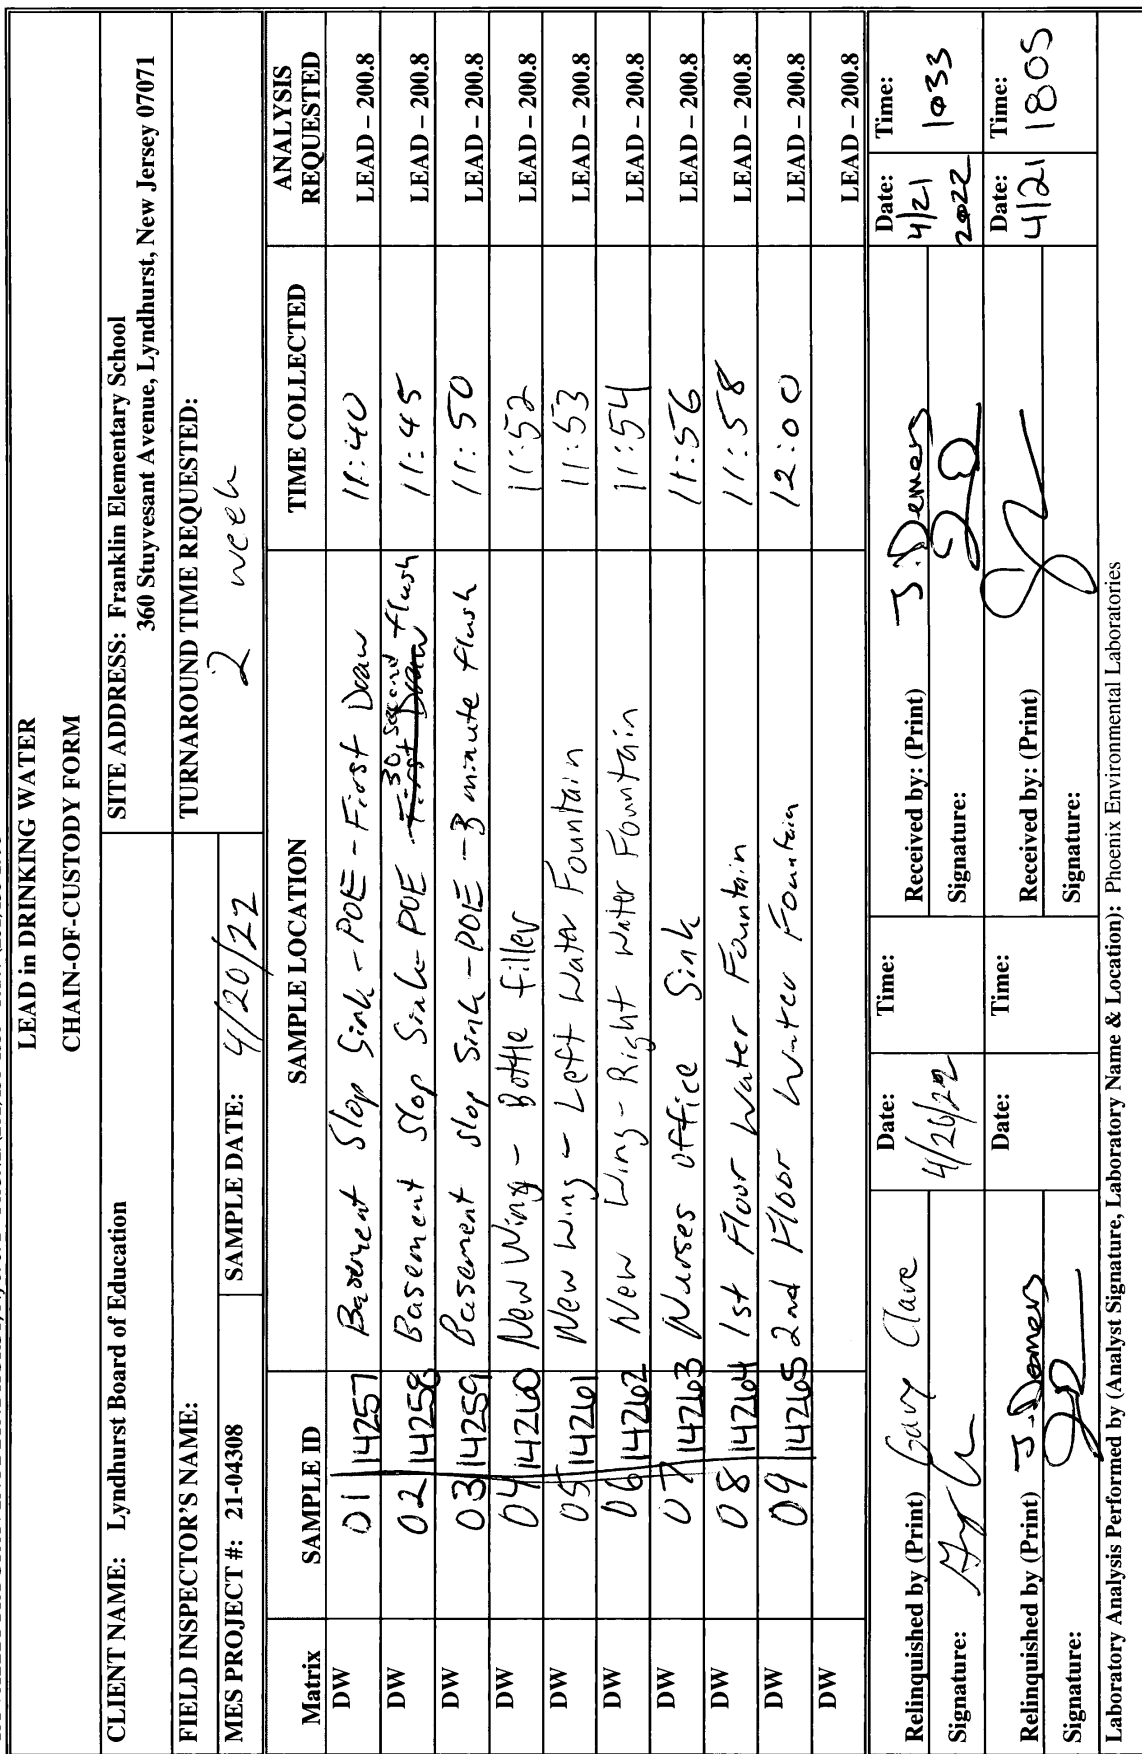 LEAD in DRINKING WATER
CHAIN-OF-CUSTODY FORM
CLIENT NAME: Lyndhurst Board of Education
SITE ADDRESS: Franklin Elementary School
360 Stuyvesant Avenue, Lyndhurst, New Jersey 07071
FIELD INSPECTOR'S NAME:
TURNAROUND TIME REQUESTED:
2 week
MES PROJECT #: 21-04308
SAMPLE DATE: 4/20/22
Matrix SAMPLE ID SAMPLE LOCATION TIME COLLECTED ANALYSIS REQUESTED
DW 01 14257 Basement Slop Sink - POE - First Draw 11:40 LEAD – 200.8
DW 02 14258 Basement Slop Sink - POE - First Draw 30 second flush 11:45 LEAD – 200.8
DW 03 14259 Basement slop Sink - POE - 3 minute flush 11:50 LEAD – 200.8
DW 04 14260 New Wing - Bottle filler 11:52 LEAD – 200.8
DW 05 14261 New Wing - Left Water Fountain 11:53 LEAD – 200.8
DW 06 14262 New Wing - Right Water Fountain 11:54 LEAD – 200.8
DW 07 14263 Nurses office Sink 11:56 LEAD – 200.8
DW 08 14264 1st Floor Water Fountain 11:58 LEAD – 200.8
DW 09 14265 2nd Floor Water Fountain 12:00 LEAD – 200.8
DW LEAD – 200.8
Relinquished by (Print) Gary Clare
Signature:
Date: 4/20/22
Time:
Received by: (Print) J. Demers
Signature:
Date: 4/21 2022
Time: 1033
Relinquished by (Print) J. Demers
Signature:
Date:
Time:
Received by: (Print)
Signature:
Date: 4/21
Time: 1805
Laboratory Analysis Performed by (Analyst Signature, Laboratory Name & Location): Phoenix Environmental Laboratories